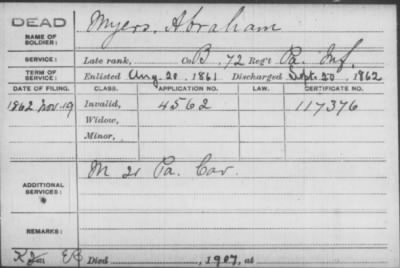 DEAD
NAME OF SOLDIER: Myers, Abraham
SERVICE: Late rank, Co. B, 72 Reg't Pa. Inf.
TERM OF SERVICE: Enlisted Aug. 20, 1861 Discharged Sept. 20, 1862
DATE OF FILING. CLASS. APPLICATION NO. LAW. CERTIFICATE NO.
1862 Nov. 19 Invalid, 4562 117376
Widow,
Minor,
ADDITIONAL SERVICES: M 21 Pa. Cav.
REMARKS:
Died , 1907, at